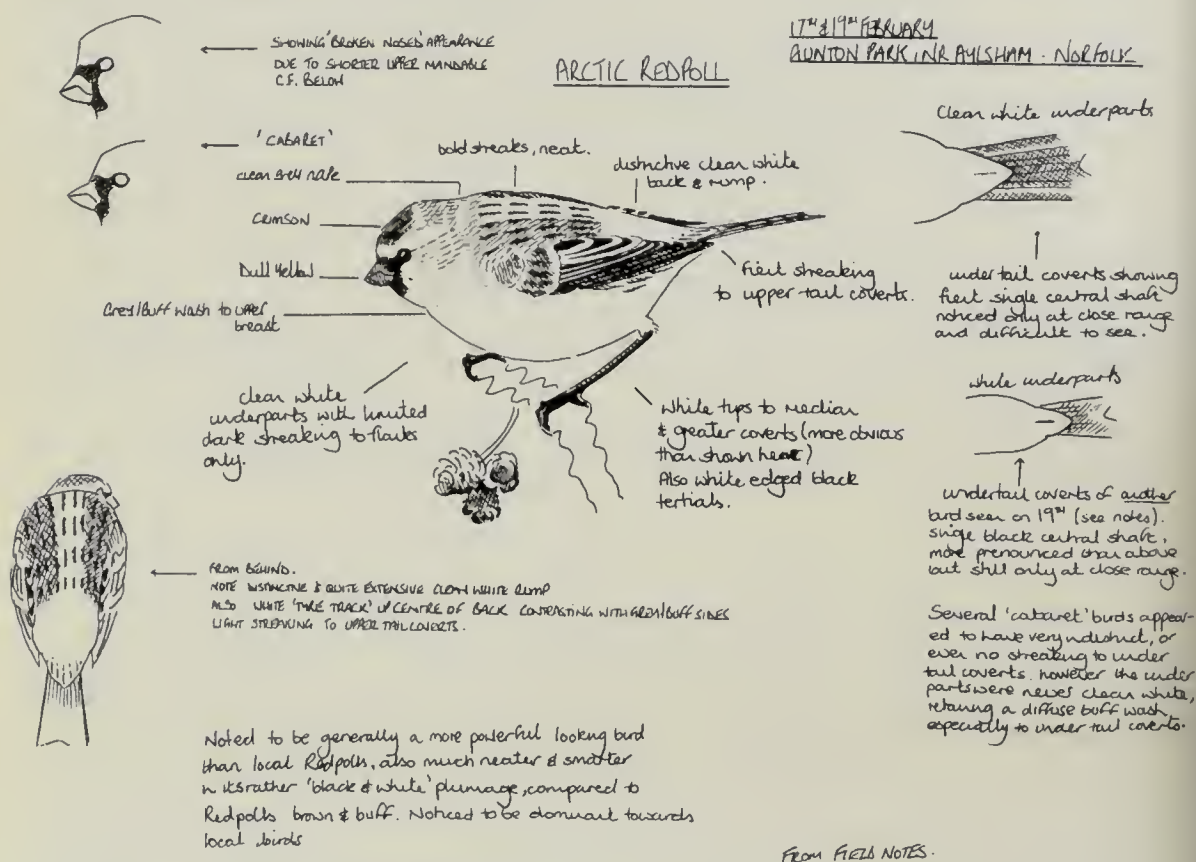 17TH & 19TH FEBRUARY
GUNTON PARK, NR AYLSHAM - NORFOLK
ARCTIC REDPOLL
SHOWING 'BROKEN NOSED' APPEARANCE
DUE TO SHORTER UPPER MANDABLE
C.F. BELOW
'CABARET'
clean grey nape
Crimson
Dull Yellow
Grey/Buff wash to upper
breast
bold streaks, neat.
distinctive clean white
back & rump.
Faint streaking
to upper tail coverts.
clean white
underparts with limited
dark streaking to flanks
only.
White tips to median
& greater coverts (more obvious
than shown here)
Also white edged black
tertials.
Clean white underparts
undertail coverts showing
faint single central shaft
noticed only at close range
and difficult to see.
white underparts
undertail coverts of another
bird seen on 19TH (see notes).
single black central shaft,
more pronounced than above
but still only at close range.
Several 'cabaret' birds appear-
ed to have very indistinct, or
even no streaking to under
tail coverts. however the under
parts were never clean white,
retaining a diffuse buff wash
especially to under tail coverts.
FROM BEHIND.
NOTE DISTINCTIVE & QUITE EXTENSIVE CLEAN WHITE RUMP
ALSO WHITE 'TYRE TRACK' UP CENTRE OF BACK CONTRASTING WITH GREY/BUFF SIDES
LIGHT STREAKING TO UPPER TAIL COVERTS.
Noted to be generally a more powerful looking bird
than local Redpolls, also much neater & smarter
in its rather 'black & white' plumage, compared to
Redpolls brown & buff. Noticed to be dominant towards
local birds
FROM FIELD NOTES.